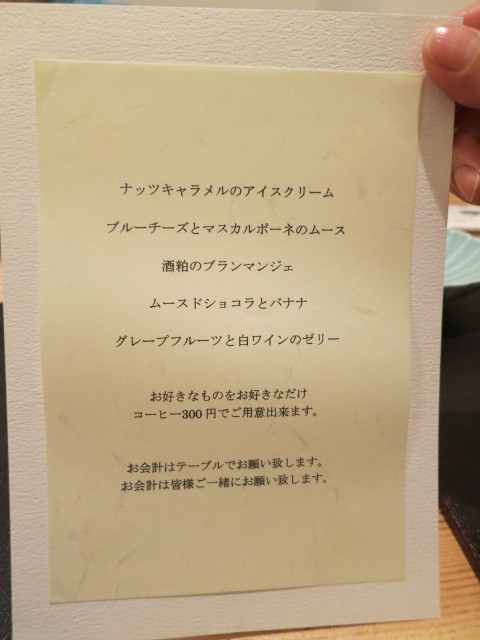 ナッツキャラメルのアイスクリーム
ブルーチーズとマスカルポーネのムース
酒粕のブランマンジェ
ムースドショコラとバナナ
グレープフルーツと白ワインのゼリー
お好きなものをお好きなだけ
コーヒー300円でご用意出来ます。
お会計はテーブルでお願い致します。
お会計は皆様ご一緒にお願い致します。